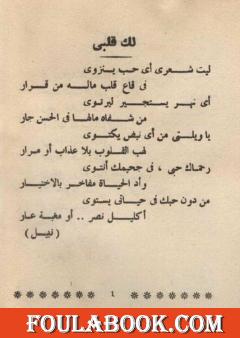 لك قلبى
ليت شعرى أى حب ينزوى
فى قاع قلب ماله من قرار
أى نهر يستجير ليرتوى
من شفاه مالها فى الحسن جار
يا ويلتى من أى نبض يكتوى
لهب القلوب بلا عذاب أو مرار
رحماك حبى ، فى جحيمك أنتوى
وأد الحياة مفاخر بالاختيار
من دون حبك فى حياتى يستوى
أكليل نصر .. أو مغبة عار
( نبيل )
1
FOULABOOK.COM